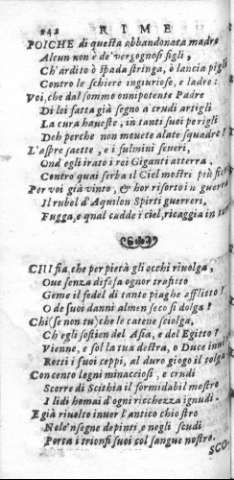 242 RIME
POICHE di questa abbandonata madre
Alcun non è de' vergognosi figli,
Ch'ardito ò spada stringa, ò lancia pigli
Contro le schiere ingiuriose, e ladre:
Voi, che dal sommo onnipotente Padre
Di lei fatta già segno a crudi artigli
La cura haueste, in tanti suoi perigli
Deh perche non mouete alate squadre?
L'aspre saette, e i fulmini seueri,
Ond egli irato i rei Giganti atterra,
Contro quai serba il Ciel mostri più
Per voi già vinto, & hor risorto in guerra
Il rubol d'Aquilon Spirti guerreri,
Fugga, e qual cadde i ciel, ricaggia in
CHI fia, che per pietà gli occhi riuolga,
Oue senza difesa ognor trafitto
Geme il fedel di tante piaghe afflitto?
O de suoi danni almen seco si dolga?
Chi (se non tu) che le catene sciolga,
Ch'egli sostien del Asia, e del Egitto?
Vienne, e sol la tua destra, o Duce
Rotti i suoi ceppi, al duro giogo il tolga
Con cento legni minacciosi, e crudi
Scorre di Scithia il formidabil mostro
I lidi homai d'ogni ricchezza ignudi.
E già riuolto inuer l'antico chiostro
Nole'nsegne depinti, e negli scudi
Porta i trionfi suoi col sangue nostro.
SCO-